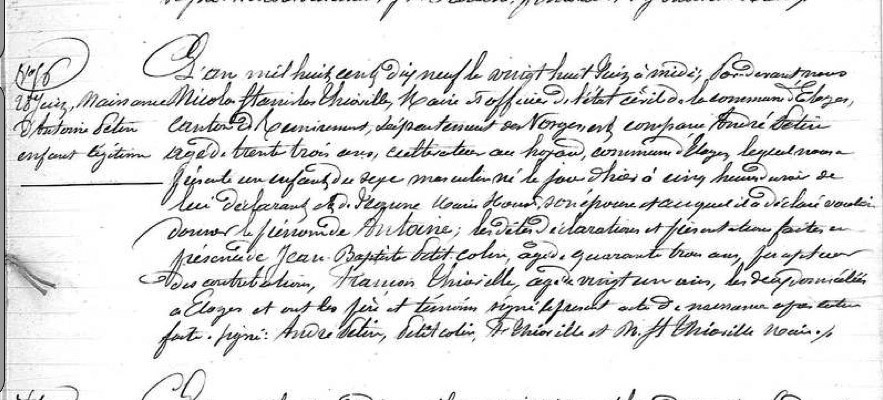 N° 6
28 juin, Naissance
d'Antoine Petin
enfant légitime
L'an mil huit cent dix neuf le vingt huit Juin à midi, Pardevant nous
Nicolas Stanislas Thiaville, Maire et officier de l'état civil de la commune d'Eloyes,
canton de Remiremont, département des Vosges, est comparu André Petin
agé de trente trois ans, cultivateur au commune d'Eloyes, lequel nous a
présenté un enfant du sexe masculin né le jour d'hier à cinq heures du soir de
lui déclarant et de Marie son épouse et auquel il a déclaré vouloir
donner le prénom de Antoine; les dites déclarations et présentations faites en
présence de Jean Baptiste Petit colin, agé de quarante trois ans, percepteur
des contributions, François Thiaville, agé de vingt un ans, les deux domiciliés
a Eloyes et ont les père et témoins signé le présent acte de naissance après lecture
faite. signé: André Petin, Petit colin, Fr Thiaville et N. St Thiaville Maire./.